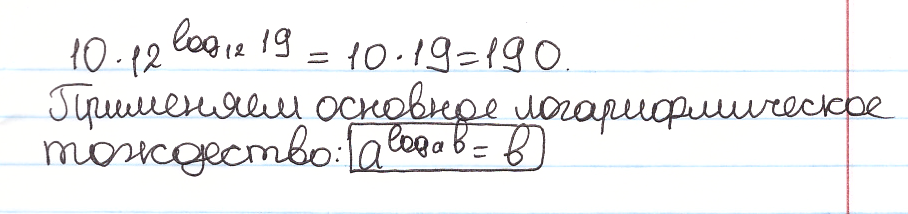 10·12^log₁₂ 19 = 10·19=190.
Применяем основное логарифмическое
тождество: a^logₐ b = b